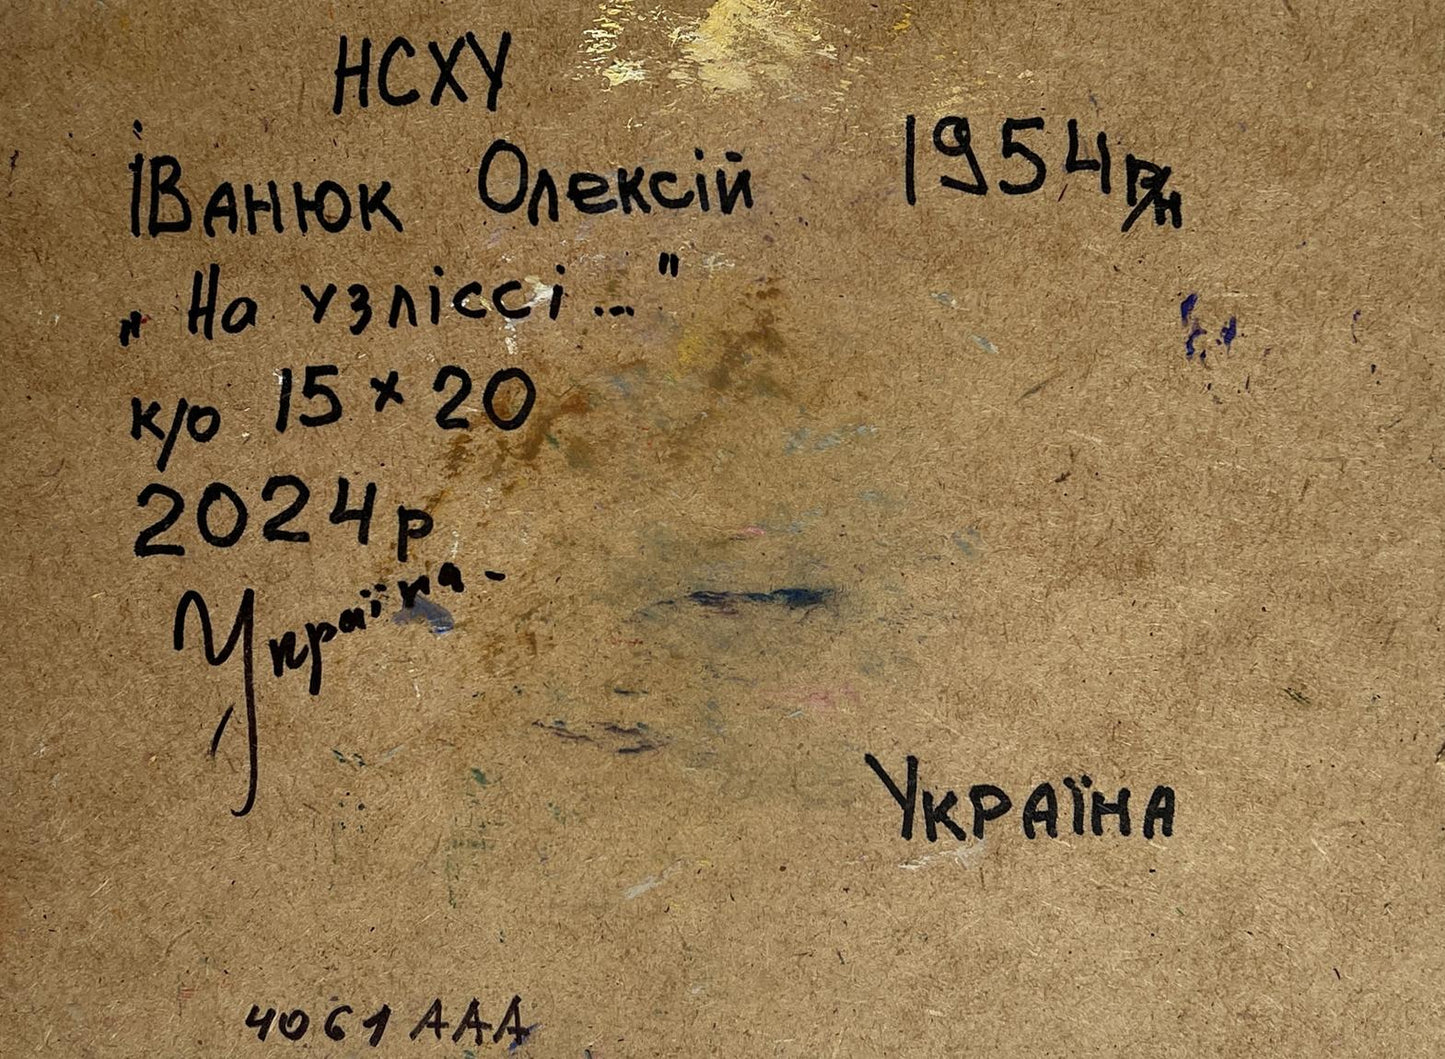 НСХУ
Іванюк Олексій 1954 р/н
„На узліссі..."
к/о 15 × 20
2024 р
Україна-
Україна
4061 ААА